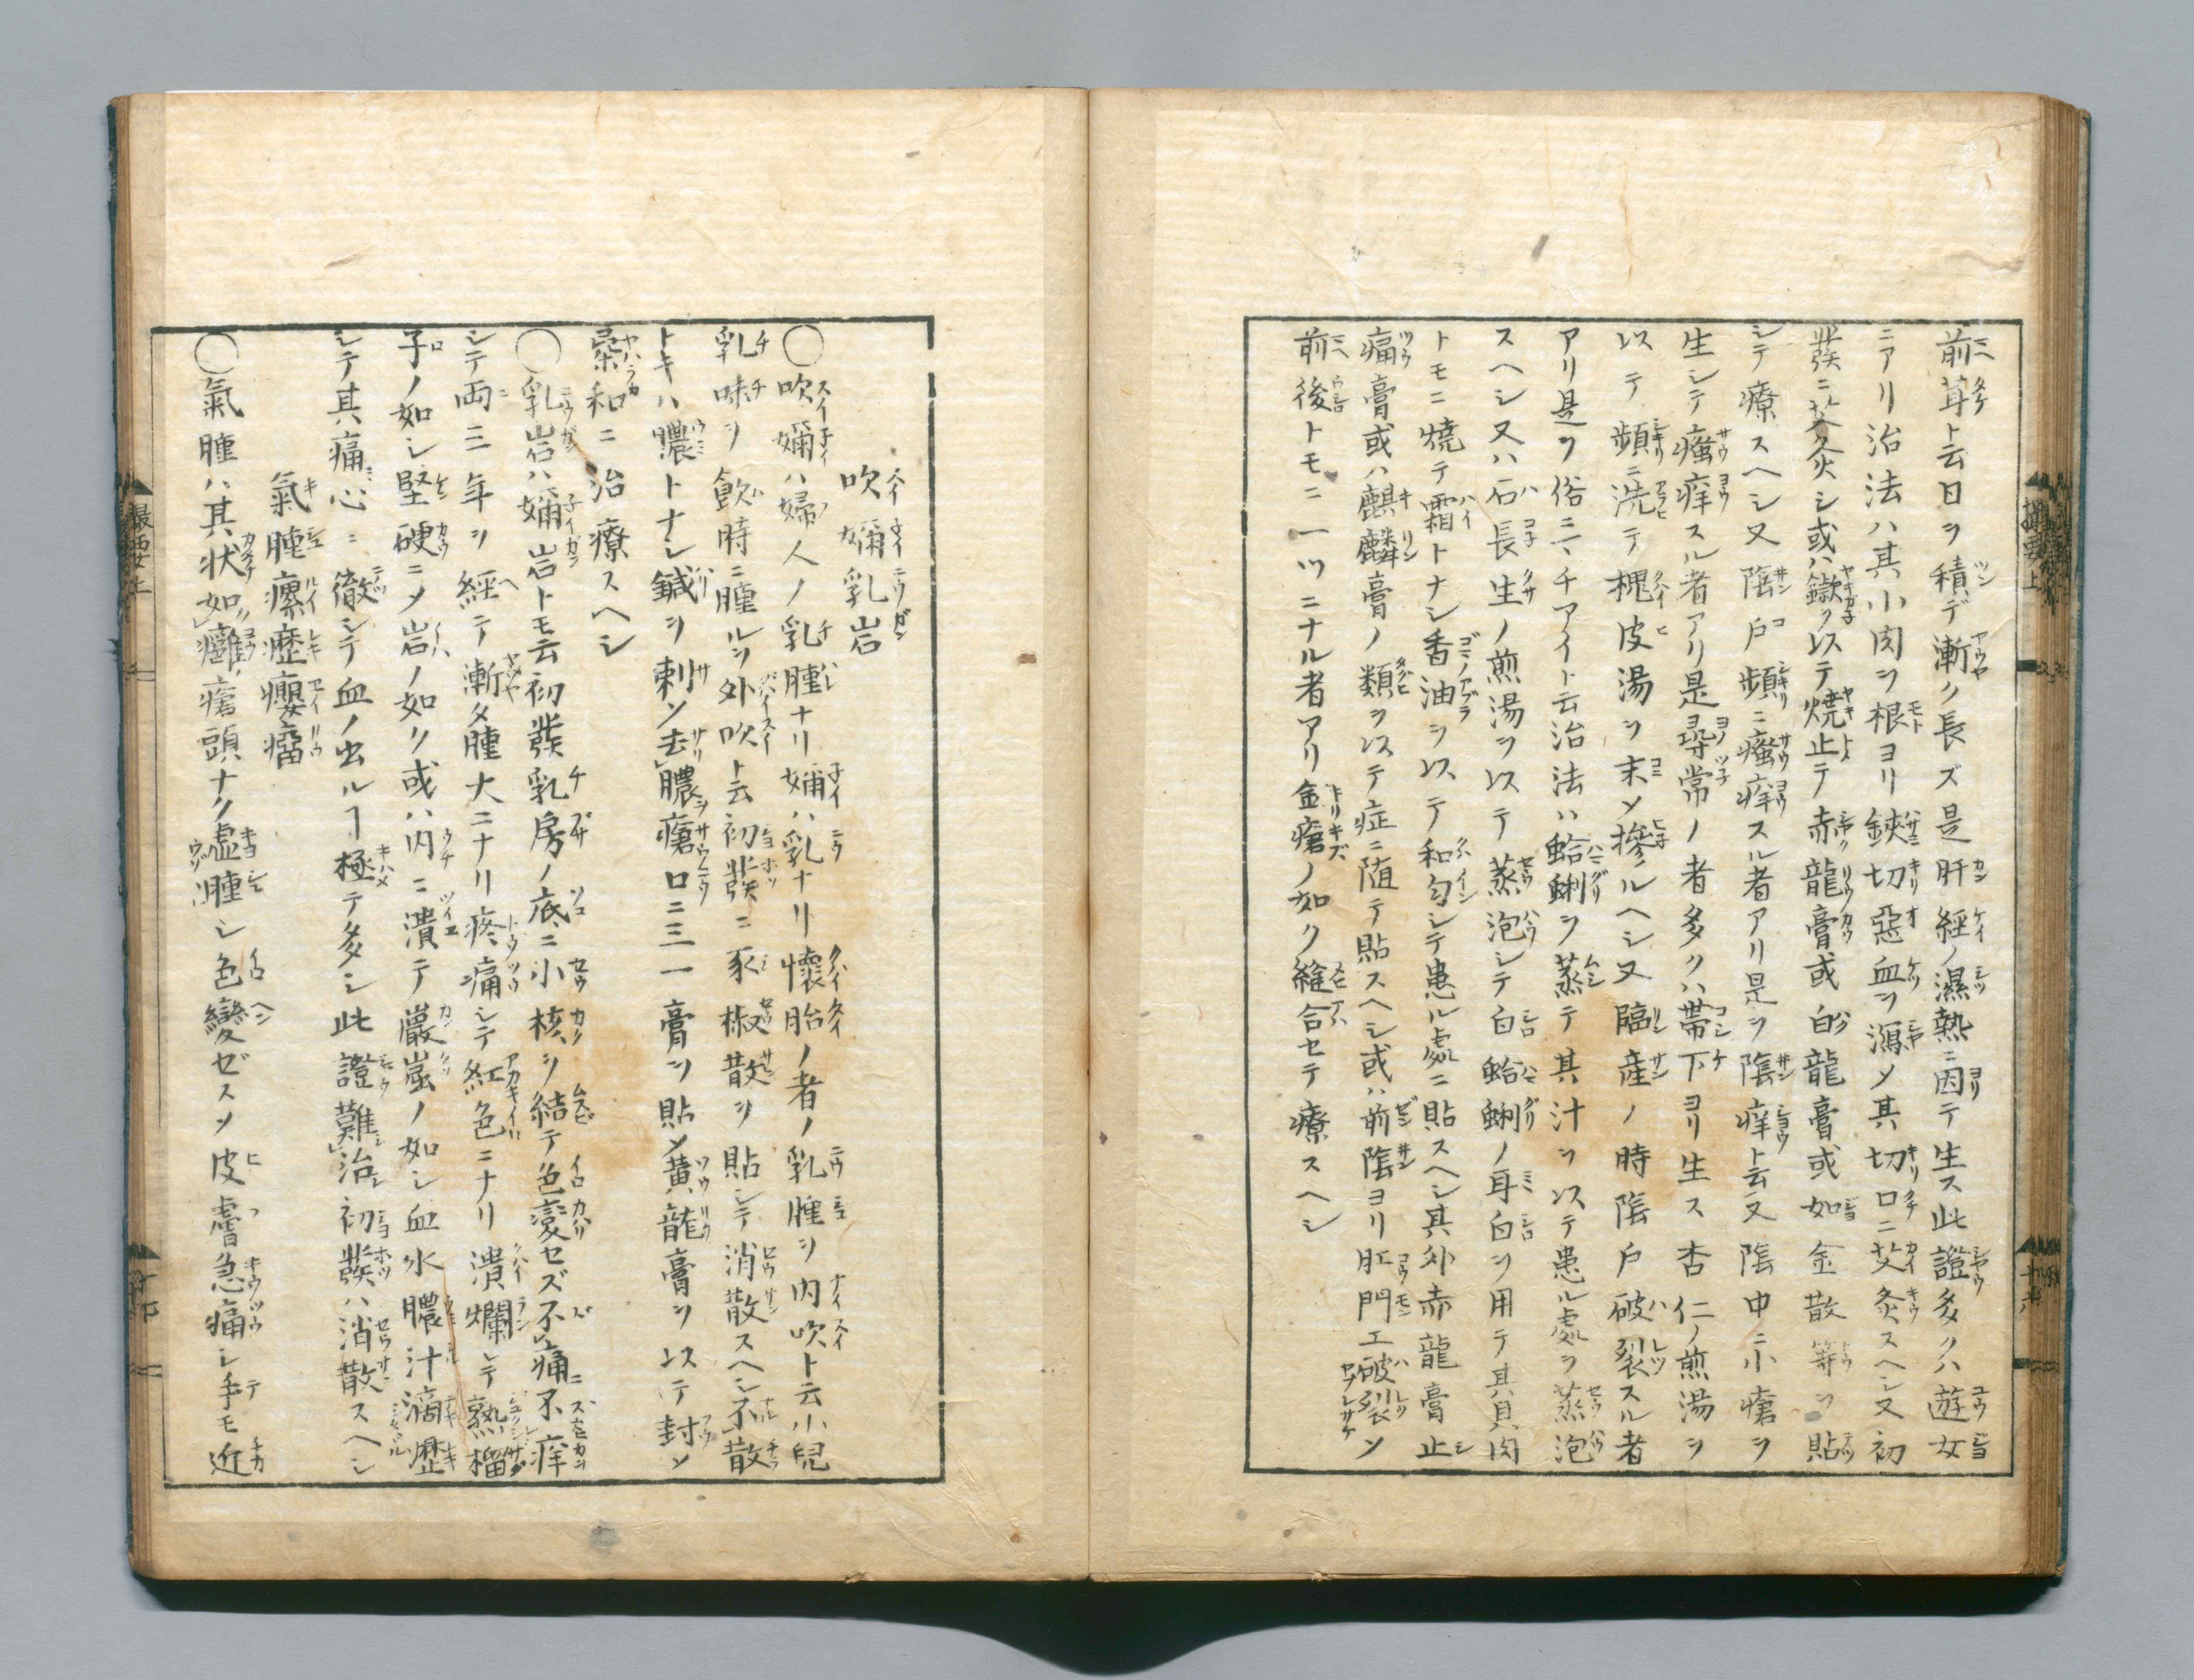 前茸ト云日ヲ積デ漸ク長ズ是肝経ノ濕熱ニ因テ生ス此證多クハ遊女
ニアリ治法ハ其小肉ヲ根ヨリ鋏切惡血ヲ瀉メ其切口ニ艾灸スヘシ又初
發ニ艾灸シ或ハ鐓ヲ以テ焼止テ赤龍膏或白龍膏或如金散等ヲ貼
シテ療スヘシ又陰戸頻ニ瘙痒スル者アリ是ヲ陰痒ト云又陰中ニ小瘡ヲ
生シテ瘙痒スル者アリ是尋常ノ者多クハ帯下ヨリ生ス杏仁ノ煎湯ヲ
以テ頻ニ洗テ槐皮湯ヲ末メ摻ルヘシ又臨産ノ時陰戸破裂スル者
アリ是ヲ俗ニ、チアイト云治法ハ蛤蜊ヲ蒸テ其汁ヲ以テ患ル處ヲ蒸泡
スヘシ又ハ石長生ノ煎湯ヲ以テ蒸泡シテ白蛤蜊ノ耳白ヲ用テ其貝肉
トモニ焼テ霜トナシ香油ヲ以テ和匀シテ患ル處ニ貼スヘシ其外赤龍膏止
痛膏或ハ麒麟膏ノ類ヲ以テ症ニ随テ貼スヘシ或ハ前陰ヨリ肛門エ破裂ン
前後トモニ一ツニナル者アリ金瘡ノ如ク縫合セテ療スヘシ
吹嬭乳岩
○吹嬭ハ婦人ノ乳腫ナリ嬭ハ乳ナリ懷胎ノ者ノ乳腫ヲ内吹ト云小兒
乳味ヲ飲時ニ腫ルヲ外吹ト云初發ニ豕椒散ヲ貼シテ消散スヘシ不散
トキハ膿トナシ鍼ヲ刺ン去膿瘡口ニ三一膏ヲ貼メ黄龍膏ヲ以テ封ン
柔和ニ治療スヘシ
○乳岩ハ嬭岩トモ云初發乳房ノ底ニ小核ヲ結テ色変セズ不痛不痒
シテ両三年ヲ経テ漸々腫大ニナリ疼痛シテ紅色ニナリ潰爛シテ熟榴
子ノ如シ堅硬ニメ岩ノ如ク或ハ内ニ潰テ巖嵓ノ如シ血水膿汁滴瀝
シテ其痛心ニ徹シテ血ノ出ルヿ極テ多シ此證難治初發ハ消散スヘシ
氣腫瘰癧癭瘤
○氣腫ハ其状如癰瘡頭ナク虚腫シ色變ゼスメ皮膚急痛シ手モ近